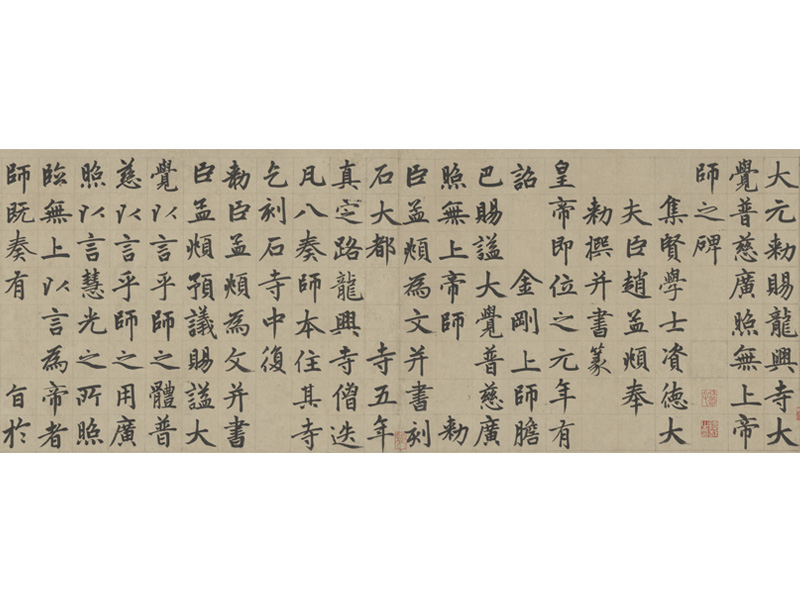 大元勅賜龍興寺大
覺普慈廣照無上帝
師之碑
集賢學士資德大
夫臣趙孟頫奉
勅撰并書篆
皇帝即位之元年有
詔金剛上師膽
巴賜謚大覺普慈廣
照無上帝師勅
臣孟頫為文并書刻
石大都寺五年
真定路龍興寺僧迭
凡八奏師本住其寺
乞刻石寺中復
勅臣孟頫為文并書
臣孟頫預議賜謚大
覺以言乎師之體普
慈以言乎師之用廣
照以言慧光之所照
臨無上以言為帝者
師既奏有旨於